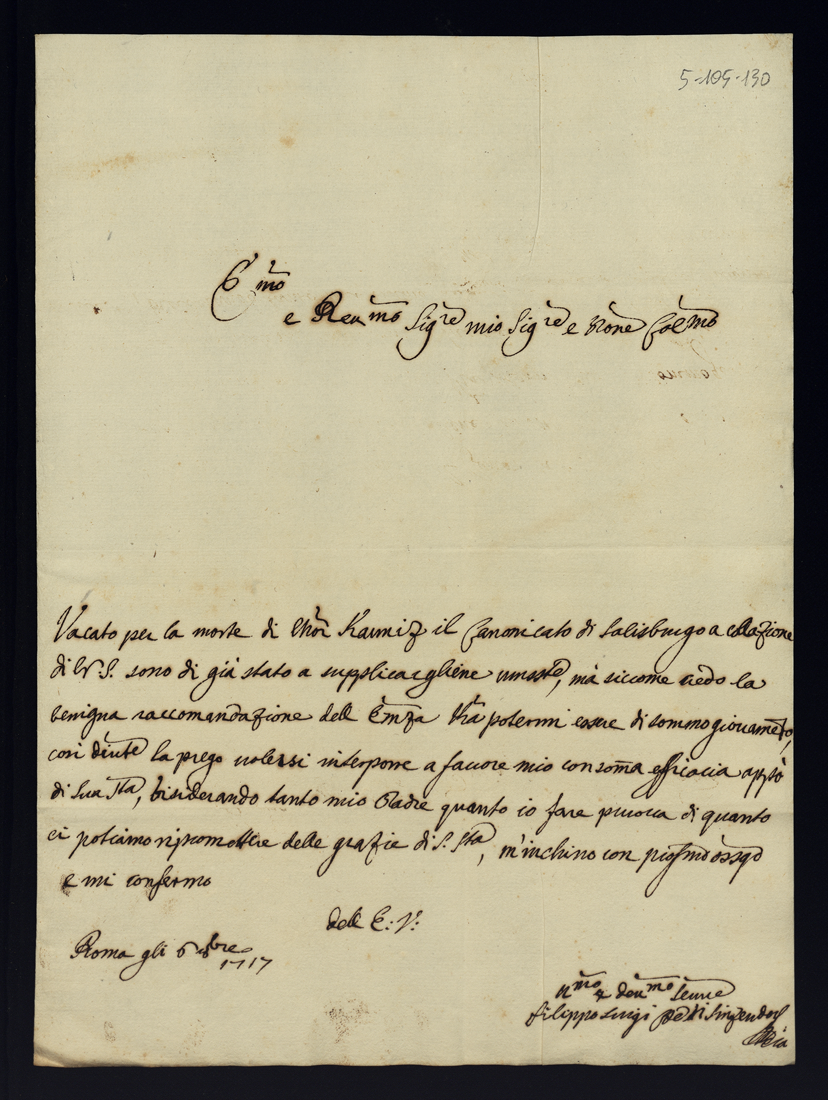 5-105-130
E.mo
e Reu.mo Sig.re mio Sig.re e Pñone Col.mo
Vacato per la morte di Mõr Kauniz il Canonicato di Salisburgo a collazione
di N. S. sono di già stato a supplicargliene, mà siccome uedo la
benigna raccomandazione dell Emza Vrã potermi essere di sommo giouamẽto,
così la prego uolersi interporre a fauore mio con sõma efficacia appso
di Sua Stà, desiderando tanto mio Padre quanto io fare pruoua di quanto
ci potiamo ripromettere delle grazie di S. Stà, m'inchino con ossqo
e mi confermo
dell E: V:
Roma gli 6 8bre
1717
U.mo e deu.mo Seruie
Filippo Luigi de Sinzendorf